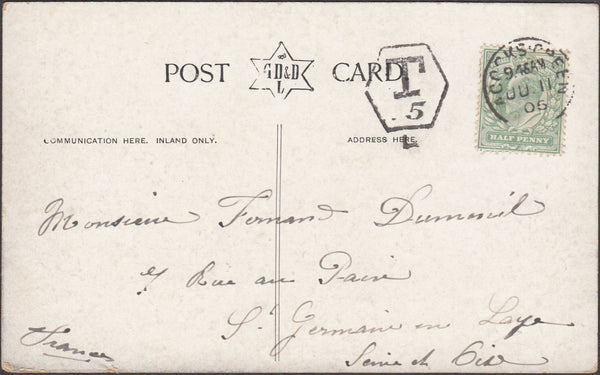 POST
G.D.&D.
L
CARD
T
5
ACOCKS-GREEN
JU 11
05
HALF PENNY
COMMUNICATION HERE. INLAND ONLY.
ADDRESS HERE.
Monsieur Fernand Dumenil
Rue au Pain
St Germain en Laye
Seine et Oise
France